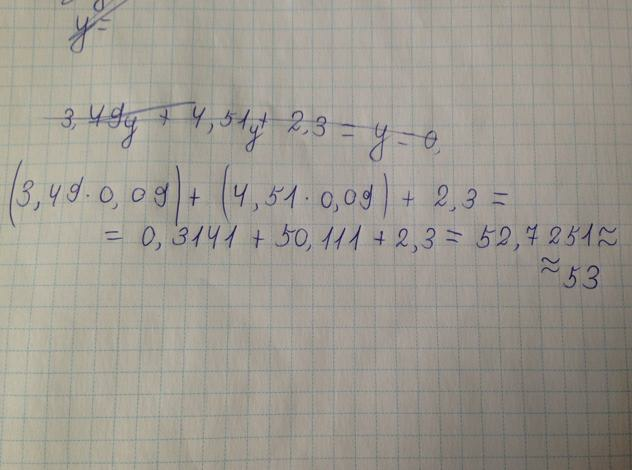 y=
3,49y + 4,51y + 2,3 = y = 0,
(3,49·0,09) + (4,51·0,09) + 2,3 =
= 0,3141 + 50,111 + 2,3 = 52,7251≈
≈53